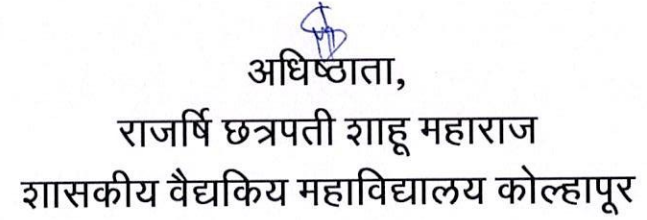 अधिष्ठाता,
राजर्षि छत्रपती शाहू महाराज
शासकीय वैद्यकिय महाविद्यालय कोल्हापूर